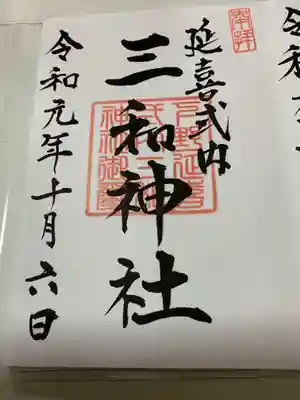 奉拝
延喜式内
三和神社
令和元年十月六日